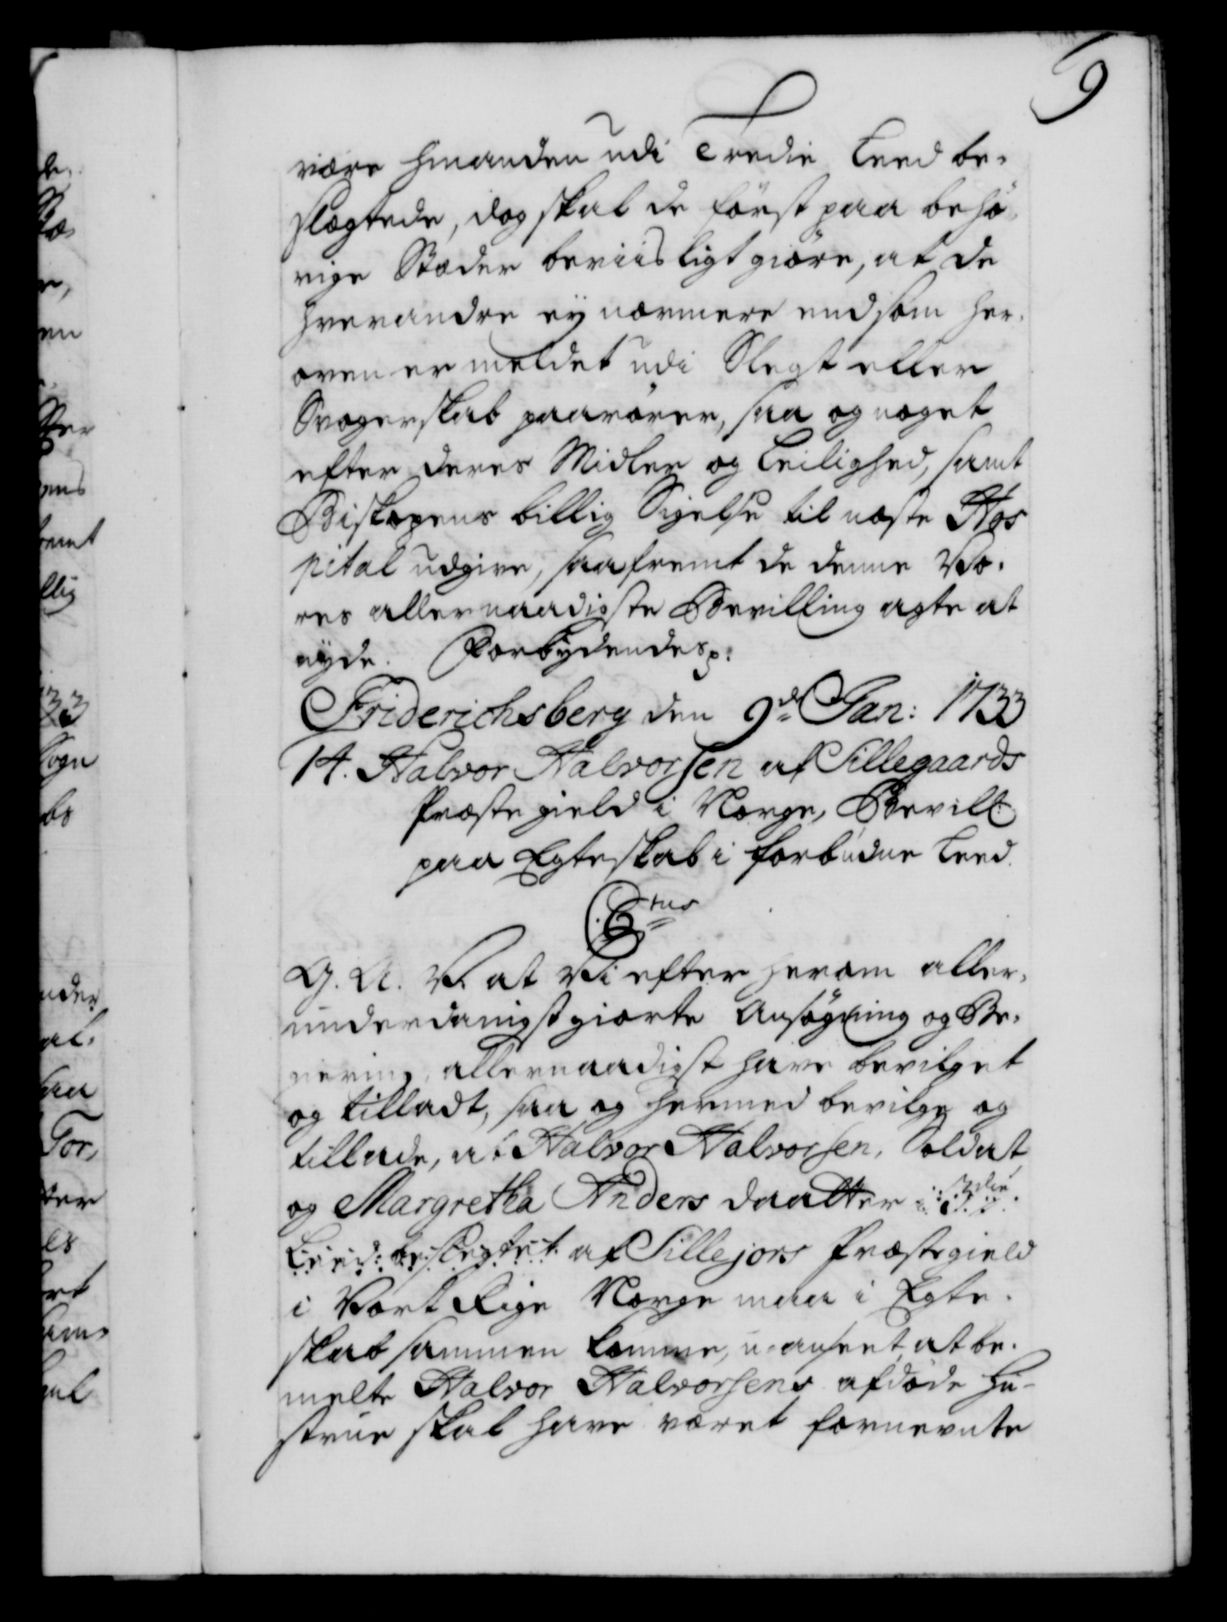 9
være hinanden udi Tredie Leed be-
slægtede, dog skal de først paa behö-
rige Stæder beviisligt giøre, at de
hverandre ey nærmere end som her-
oven er meldet udi Slegt eller
Svogerskab paarører, saa og noget
efter deres Midler og Leilighed, samt
Biskopens billig Sigelse til næste Hos
pital udgive, saafremt de denne Vo-
res allernaadigste Bevilling agte at
nyde. Forbydendes p:
Friderichsberg den 9de Jan: 1733
14. Halvor Halvorsen af Sillegaards
Præstegield i Norge, Bevill:
paa Egteskab i forbudne Leed.
C. 6tus
G. A. V. at Vi efter herom aller-
underdanigst giorte Ansögning og Be-
, allernaadigst have bevilget
og tilladt, saa og hermed bevilge og
tillade, at Halvor Halvorsen, Soldat
og Margretha Anders daatter i 3die
Leed beslegtet af Sillejors Præstegield
i Vort Rige Norge maa i Egte-
skab sammen komme, u-anseet at be-
melte Halvor Halvorsens afdøde Hu-
strue skal have været fornevnte